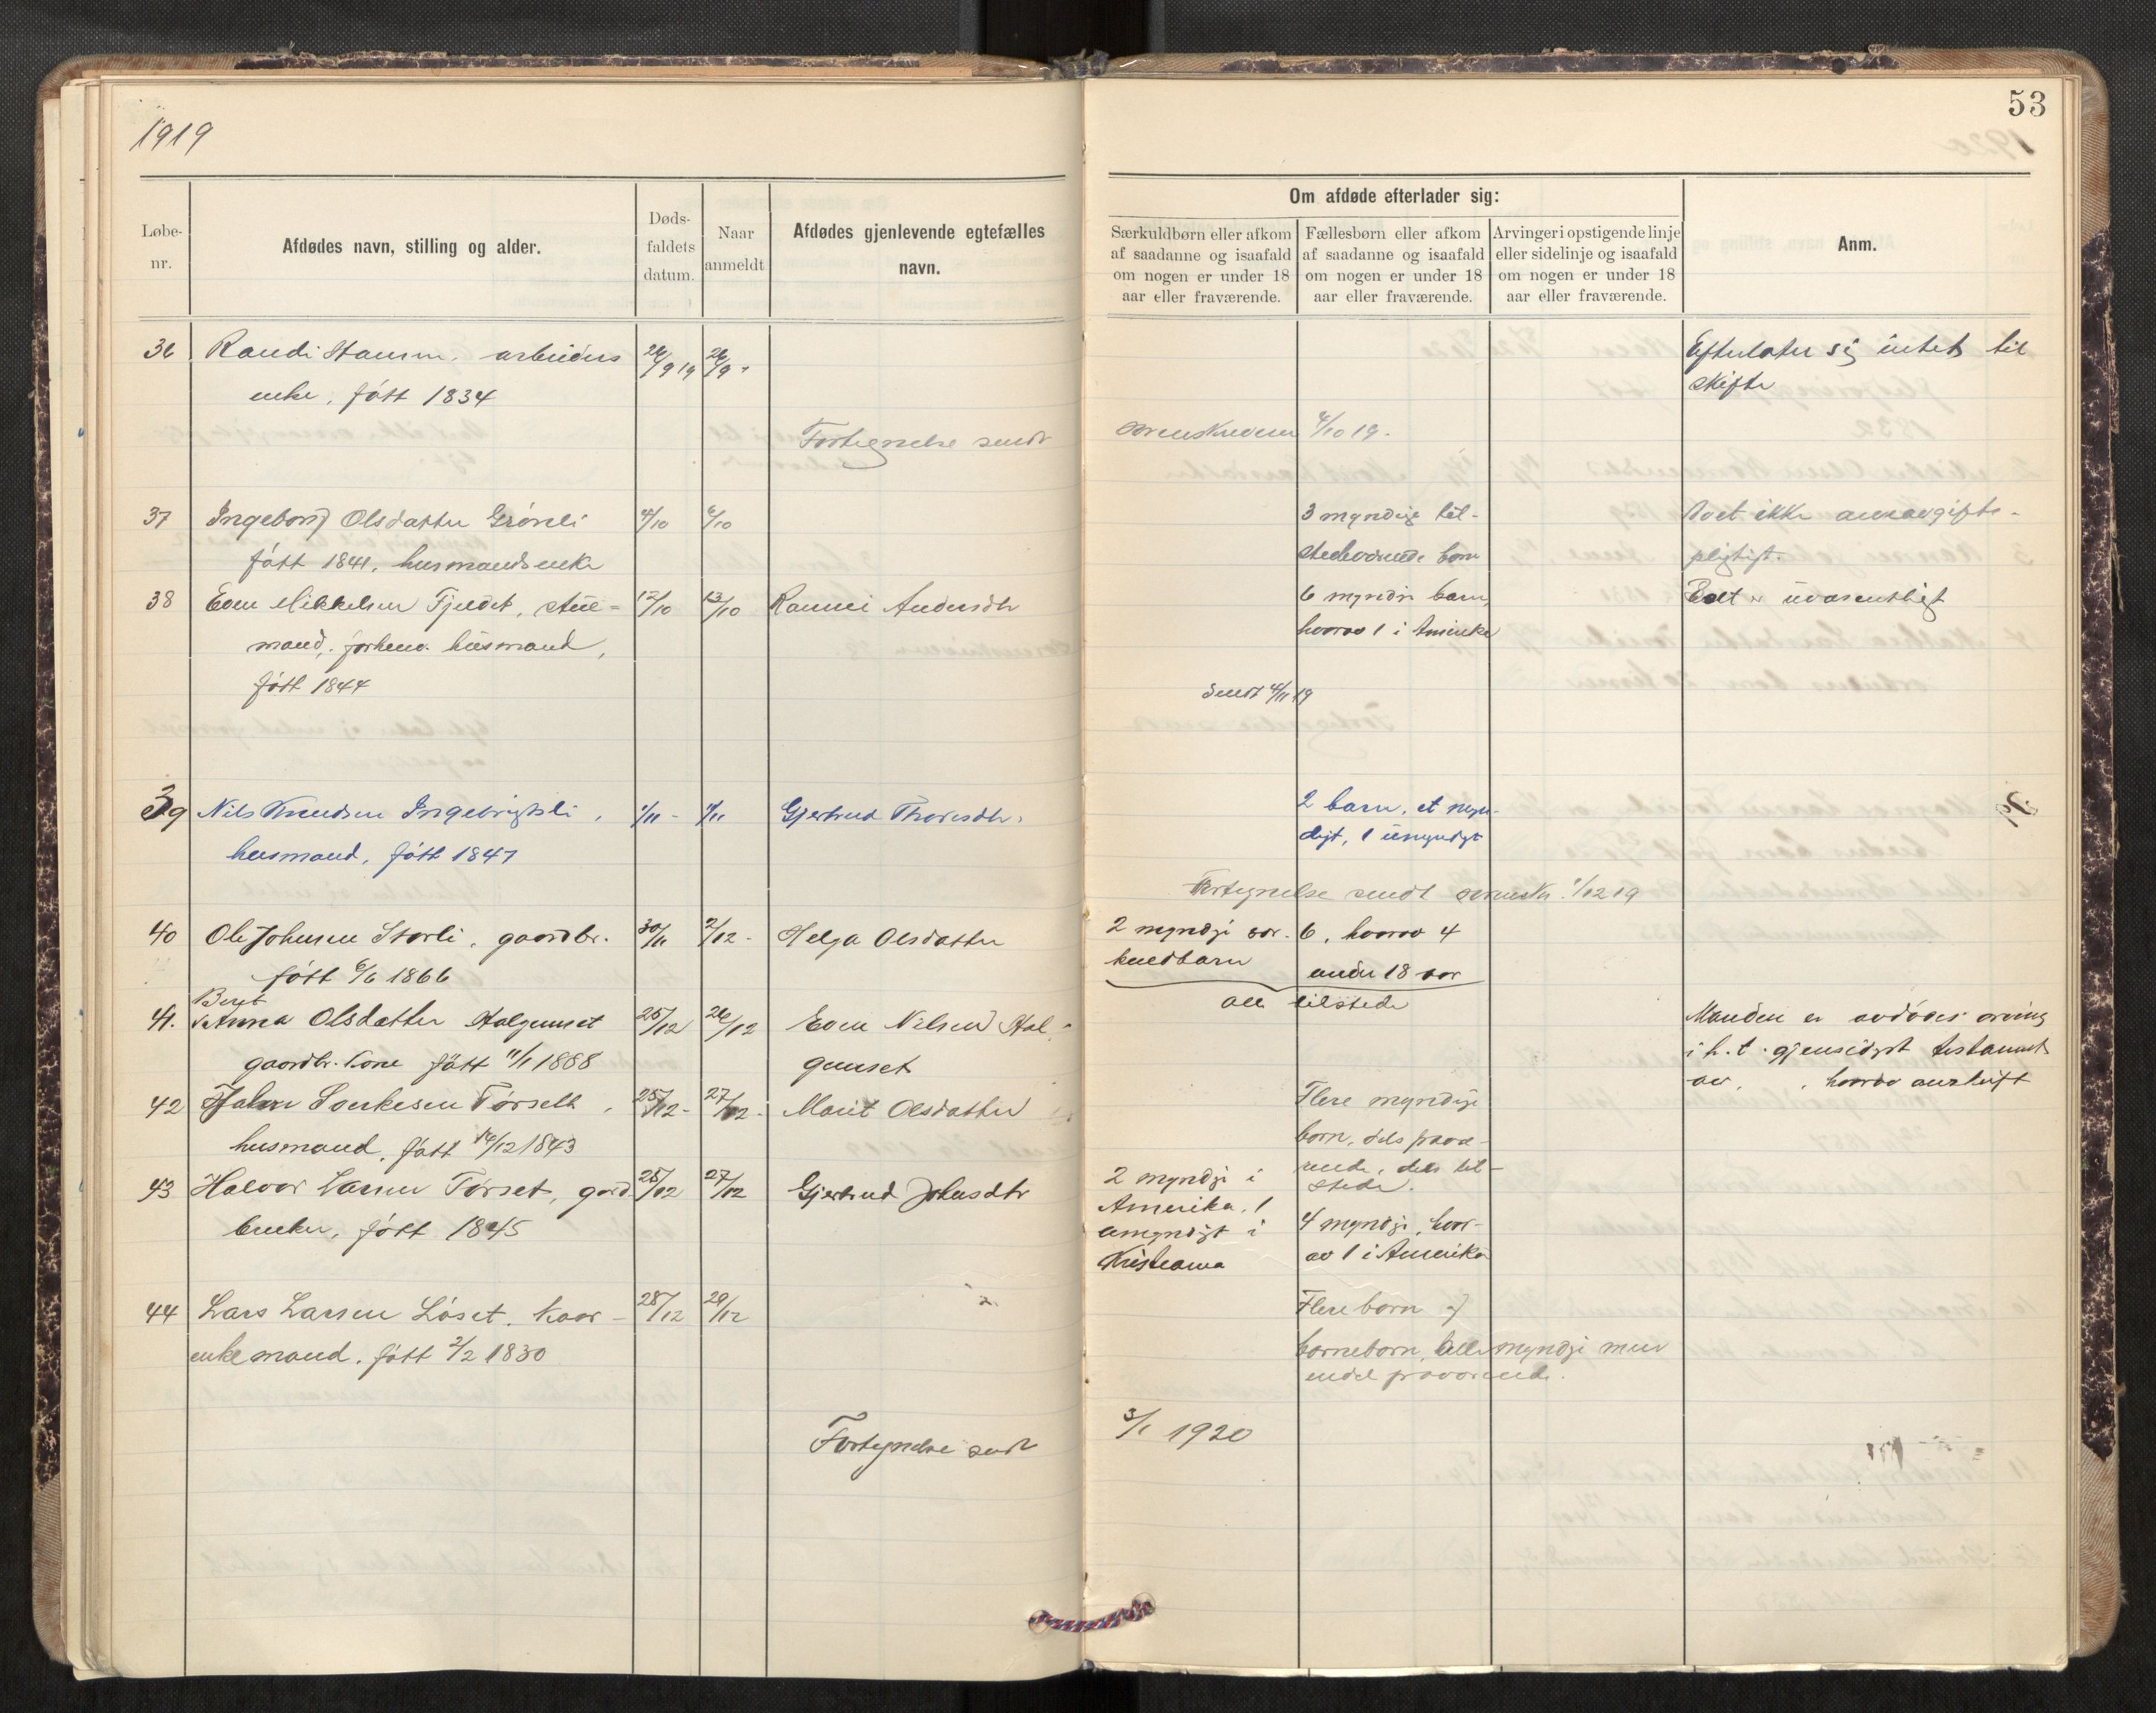 1919
53
Løbe-
nr.
Afdødes navn, stilling og alder.
Døds-
faldets
datum.
Naar
anmeldt
Afdødes gjenlevende egtefælles
navn.
Om afdøde efterlader sig:
Særkuldbørn eller afkom
af saadanne og isaafald
om nogen er under 18
aar eller fraværende.
Fællesbørn eller afkom
af saadanne og isaafald
om nogen er under 18
aar eller fraværende.
Arvinger i opstigende linje
eller sidelinje og isaafald
om nogen er under 18
aar eller fraværende.
Anm.
36 Randi Hansen, arbeiders 26/9 19 26/9
enke, født 1834
Efterlater sig intet til
skifte
Fortegnelse sendt sorenskriveren 4/10 19.
37 Ingeborg Olsdatter Grønli 4/10 6/10
født 1841, husmandsenke
3 myndige til-
stedeværende børn
Boet ikke arveavgifts-
pligtigt.
38 Even Mikkelsen Fjeldet, 12/10 13/10 Rannei Andersdtr
mand, forhenv. husmand,
født 1844
6 myndige barn,
hvorav 1 i Amerika
Boet er uvæsentligt
Sendt 4/11 19
39 Nils Knudsen Ingebrigtsli, 1/11 - Gjertrud Thoresdtr.
husmand, født 1847
2 barn, et myn-
digt, 1 umyndigt
Fortegnelse sendt sorenskr. 1/12 19
40 Ole Johnsen Storli, gaardbr. 30/11 2/12 - Helga Olsdatter
født 6/6 1866
2 myndige sær-
kuldbarn
6, hvorav 4
under 18 aar
alle tilstede
41. Beret
Anna Olsdatter Halgunset 25/12 26/12 Even Nilsen Hal-
gaardbr. kone født 11/1 1888
gunset
Manden er avdødes arving
i h. t. gjensidigt testament
av , hvorav avskrift
42 John Sverkesen Tørsett, 25/12 - 27/12 - Marit Olsdatter
husmand, født 14/12 1843
Flere myndige
børn, dels fravæ-
rende, dels til-
stede.
43 Halvor Larsen Tørset, gard 25/12 27/12 Gjertrud Johnsdtr
bruker, født 1845
2 myndige i
Amerika, 1
umyndigt i
Kristiania
4 myndige, hvor-
av 1 i Amerika
44 Lars Larsen Løset, kaar- 28/12 29/12
enkemand, født 2/2 1830
Flere børn og
børnebørn, alle myndige men
endel fraværende.
Fortegnelse sendt 3/1 1920